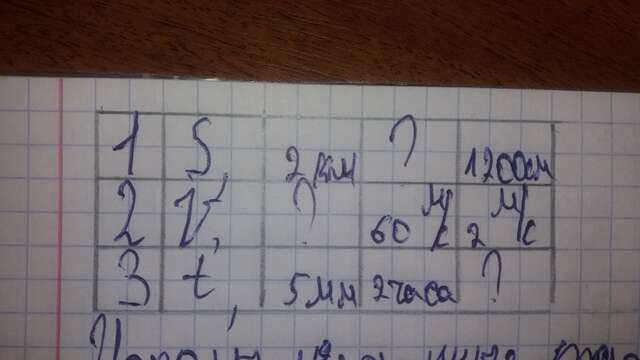 1 S, 2 км ? 1200см
2 V, ? 60 м/с 2 м/с
3 t, 5 мин 2 часа ?